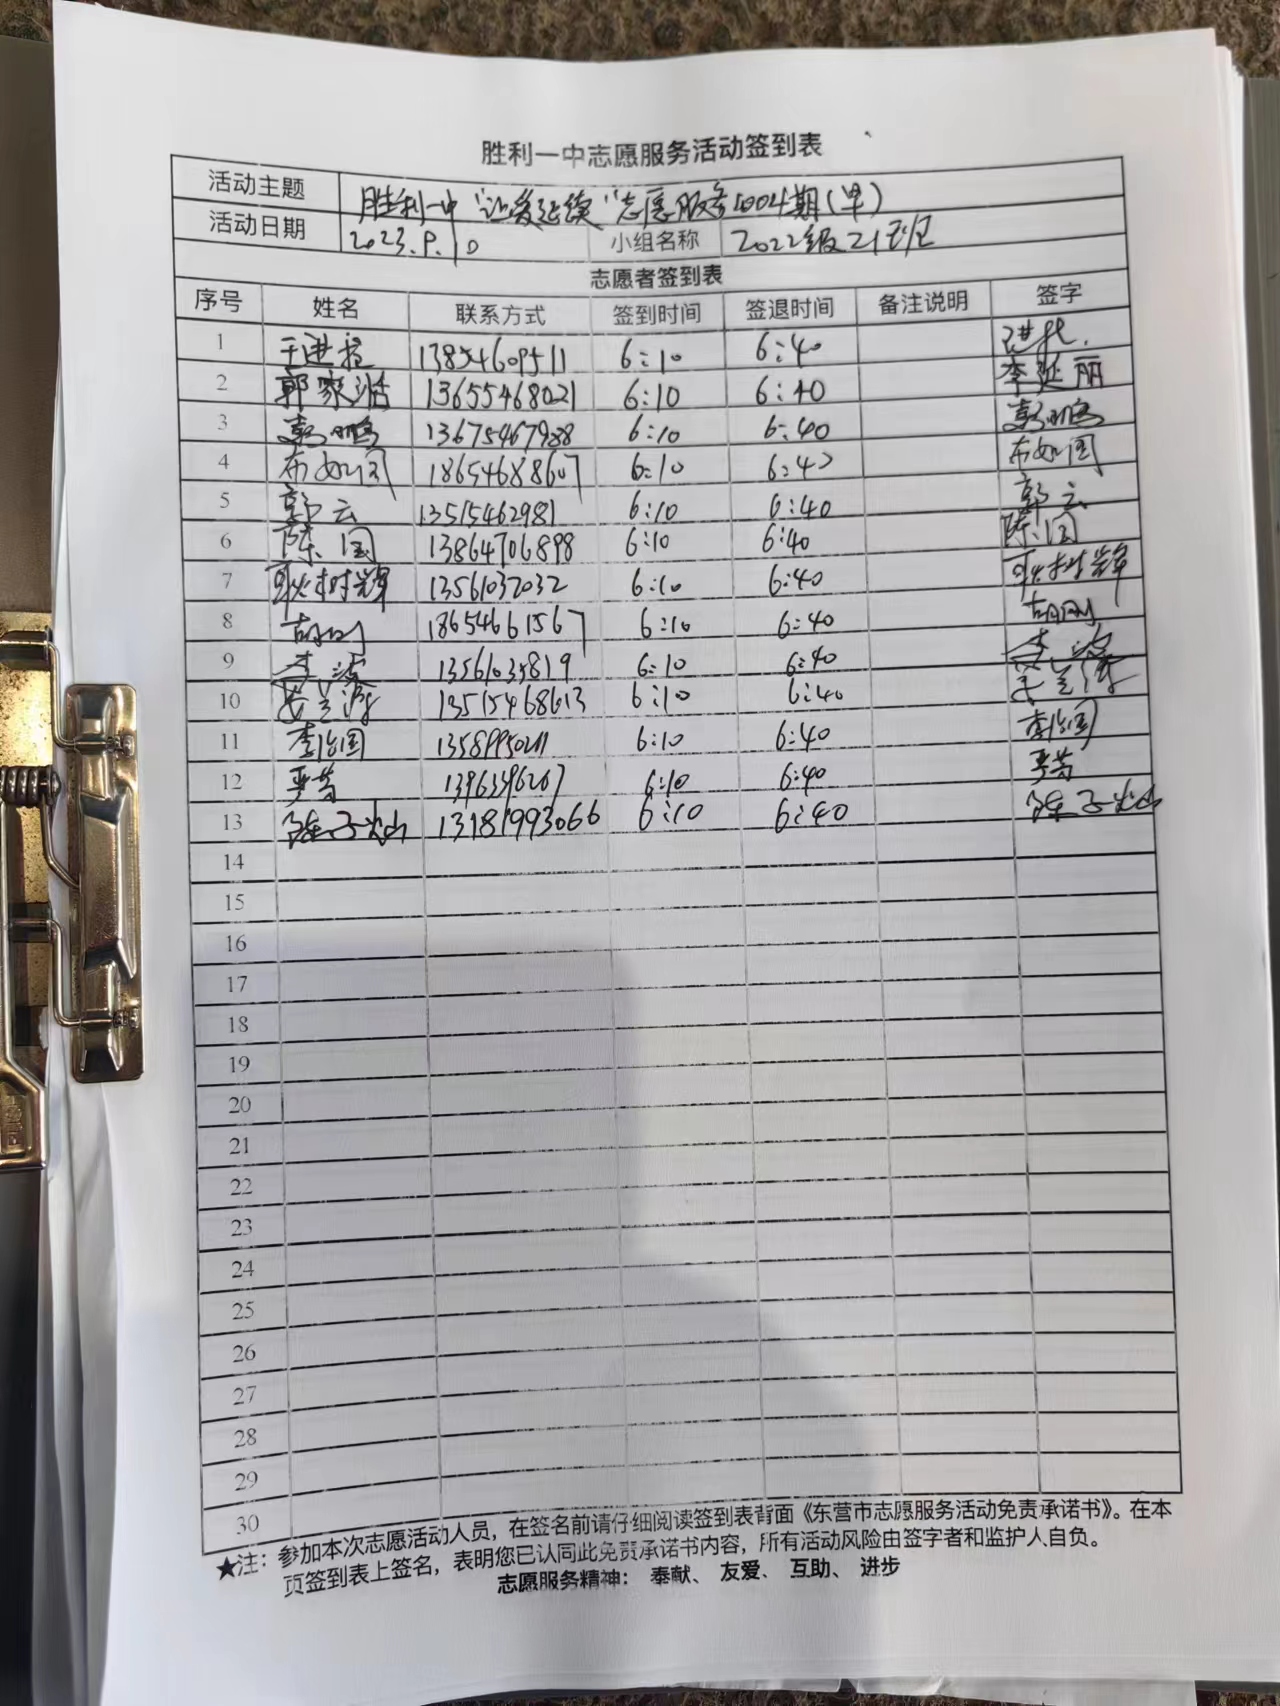 胜利一中志愿服务活动签到表
活动主题 胜利一中“让爱延续”志愿服务1004期(早)
活动日期 2023.9.10 小组名称 2022级21班
志愿者签到表
序号 姓名 联系方式 签到时间 签退时间 备注说明 签字
1 13854609511 6:10 6:40
2 郭家浩 13655468021 6:10 6:40 李延丽
3 鹏 13675467988 6:10 6:40 鹏
4 布如国 18654688607 6:10 6:40 布如国
5 郭云 13515462981 6:10 6:40 郭云
6 陈国 13864706898 6:10 6:40 陈国
7 耿树辉 13561032032 6:10 6:40 耿树辉
8 胡刚 18654661567 6:10 6:40 胡刚
9 李波 13561035819 6:10 6:40 李波
10 13515468613 6:10 6:40
11 李治国 6:10 6:40 李治国
12 6:10 6:40
13 陈子灿 13181993066 6:10 6:40 陈子灿
14
15
16
17
18
19
20
21
22
23
24
25
26
27
28
29
30
★注：参加本次志愿活动人员，在签名前请仔细阅读签到表背面《东营市志愿服务活动免责承诺书》。在本
页签到表上签名，表明您已认同此免责承诺书内容，所有活动风险由签字者和监护人自负。
志愿服务精神： 奉献、 友爱、 互助、 进步